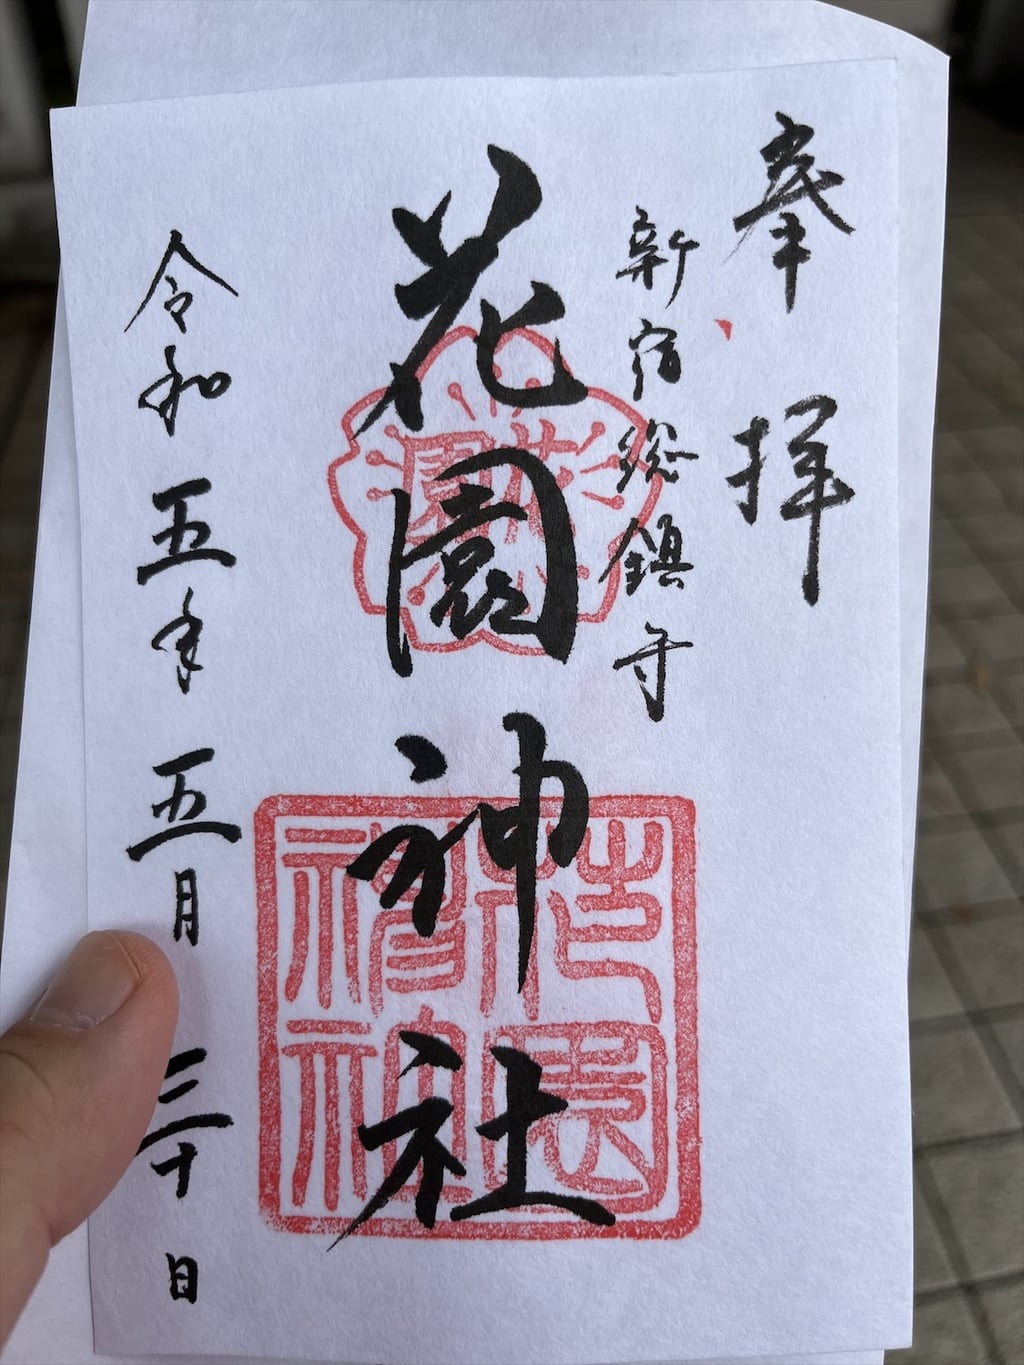 奉拝
新宿総鎮守
花園神社
花園
花園神社
令和五年五月三十日